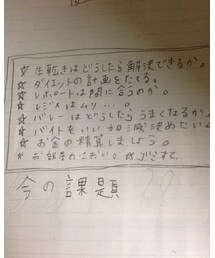 ☆ 生乾きはどうしたら解決できるか。
☆ ダイエットの計画をたてる。
☆ レポートは間に合うのか。
☆ レジメはムリ…。
☆ バレーはどうしたらうまくなるか。
☆ バイトをいい加減決めたい。
☆ お金の精算しましょう。
☆ お部屋のにおい。
今の課題